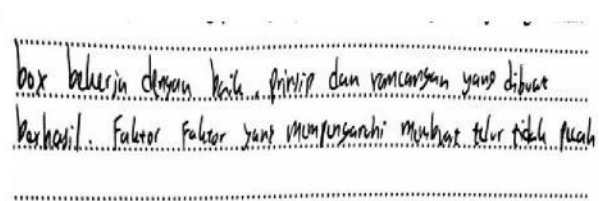 box bekerja dengan baik. prinsip dan rancangan yang dibuat
berhasil. Faktor Faktor yang mempengaruhi membuat telur tidak pecah